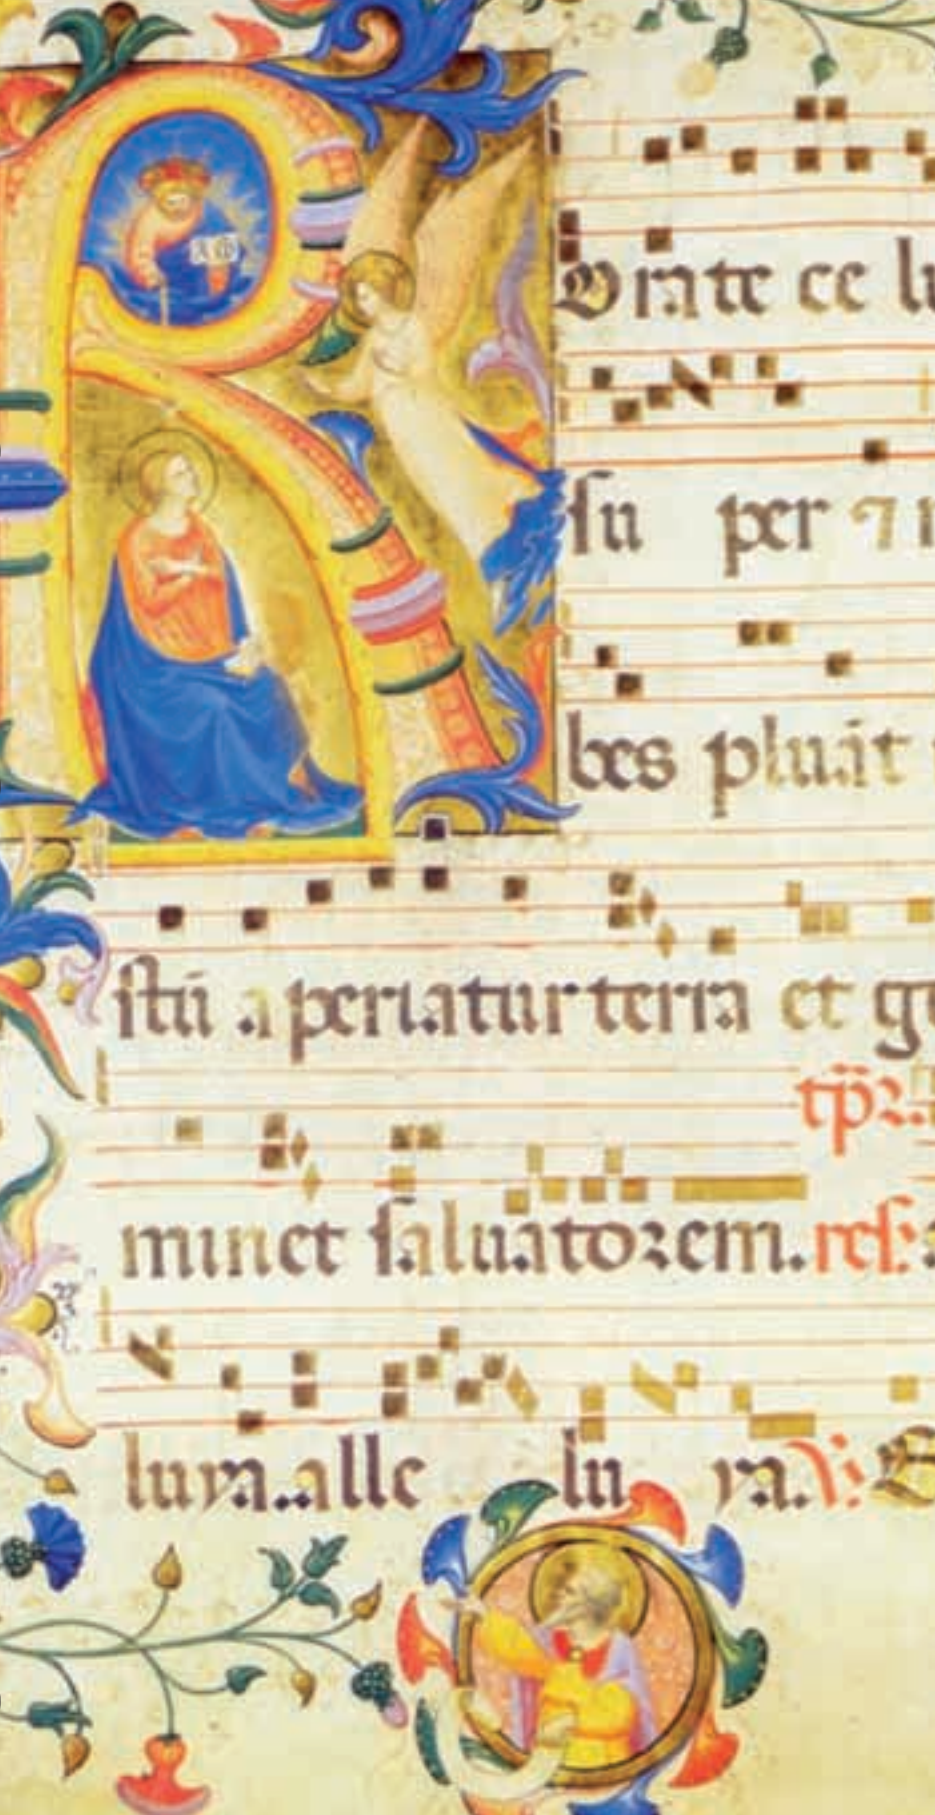 R
A Ω
Orate ce lu
ſu per ⁊ n
bes pluāt
ſtū aperiatur terra et ge
tp̄r
minet ſaluatorem. reſ.
luya. alle lu ya. V.